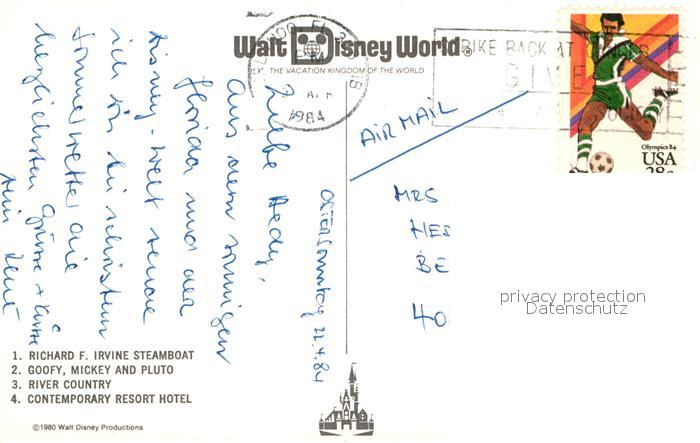 Walt Disney World®
THE VACATION KINGDOM OF THE WORLD
ORLANDO, FL
1984
STRIKE BACK AT
GIVE
Olympics 84
USA
28c
AIR MAIL
MRS
HED
BE
40
privacy protection
Datenschutz
Ostersonntag 22.4.84
Liebe Hedy,
aus dem sonnigen
Florida und der
Disney-Welt sende
ich Dir bei schönstem
Sommerwetter die
herzlichsten Grüsse + Küsse
Dein René
1. RICHARD F. IRVINE STEAMBOAT
2. GOOFY, MICKEY AND PLUTO
3. RIVER COUNTRY
4. CONTEMPORARY RESORT HOTEL
©1980 Walt Disney Productions